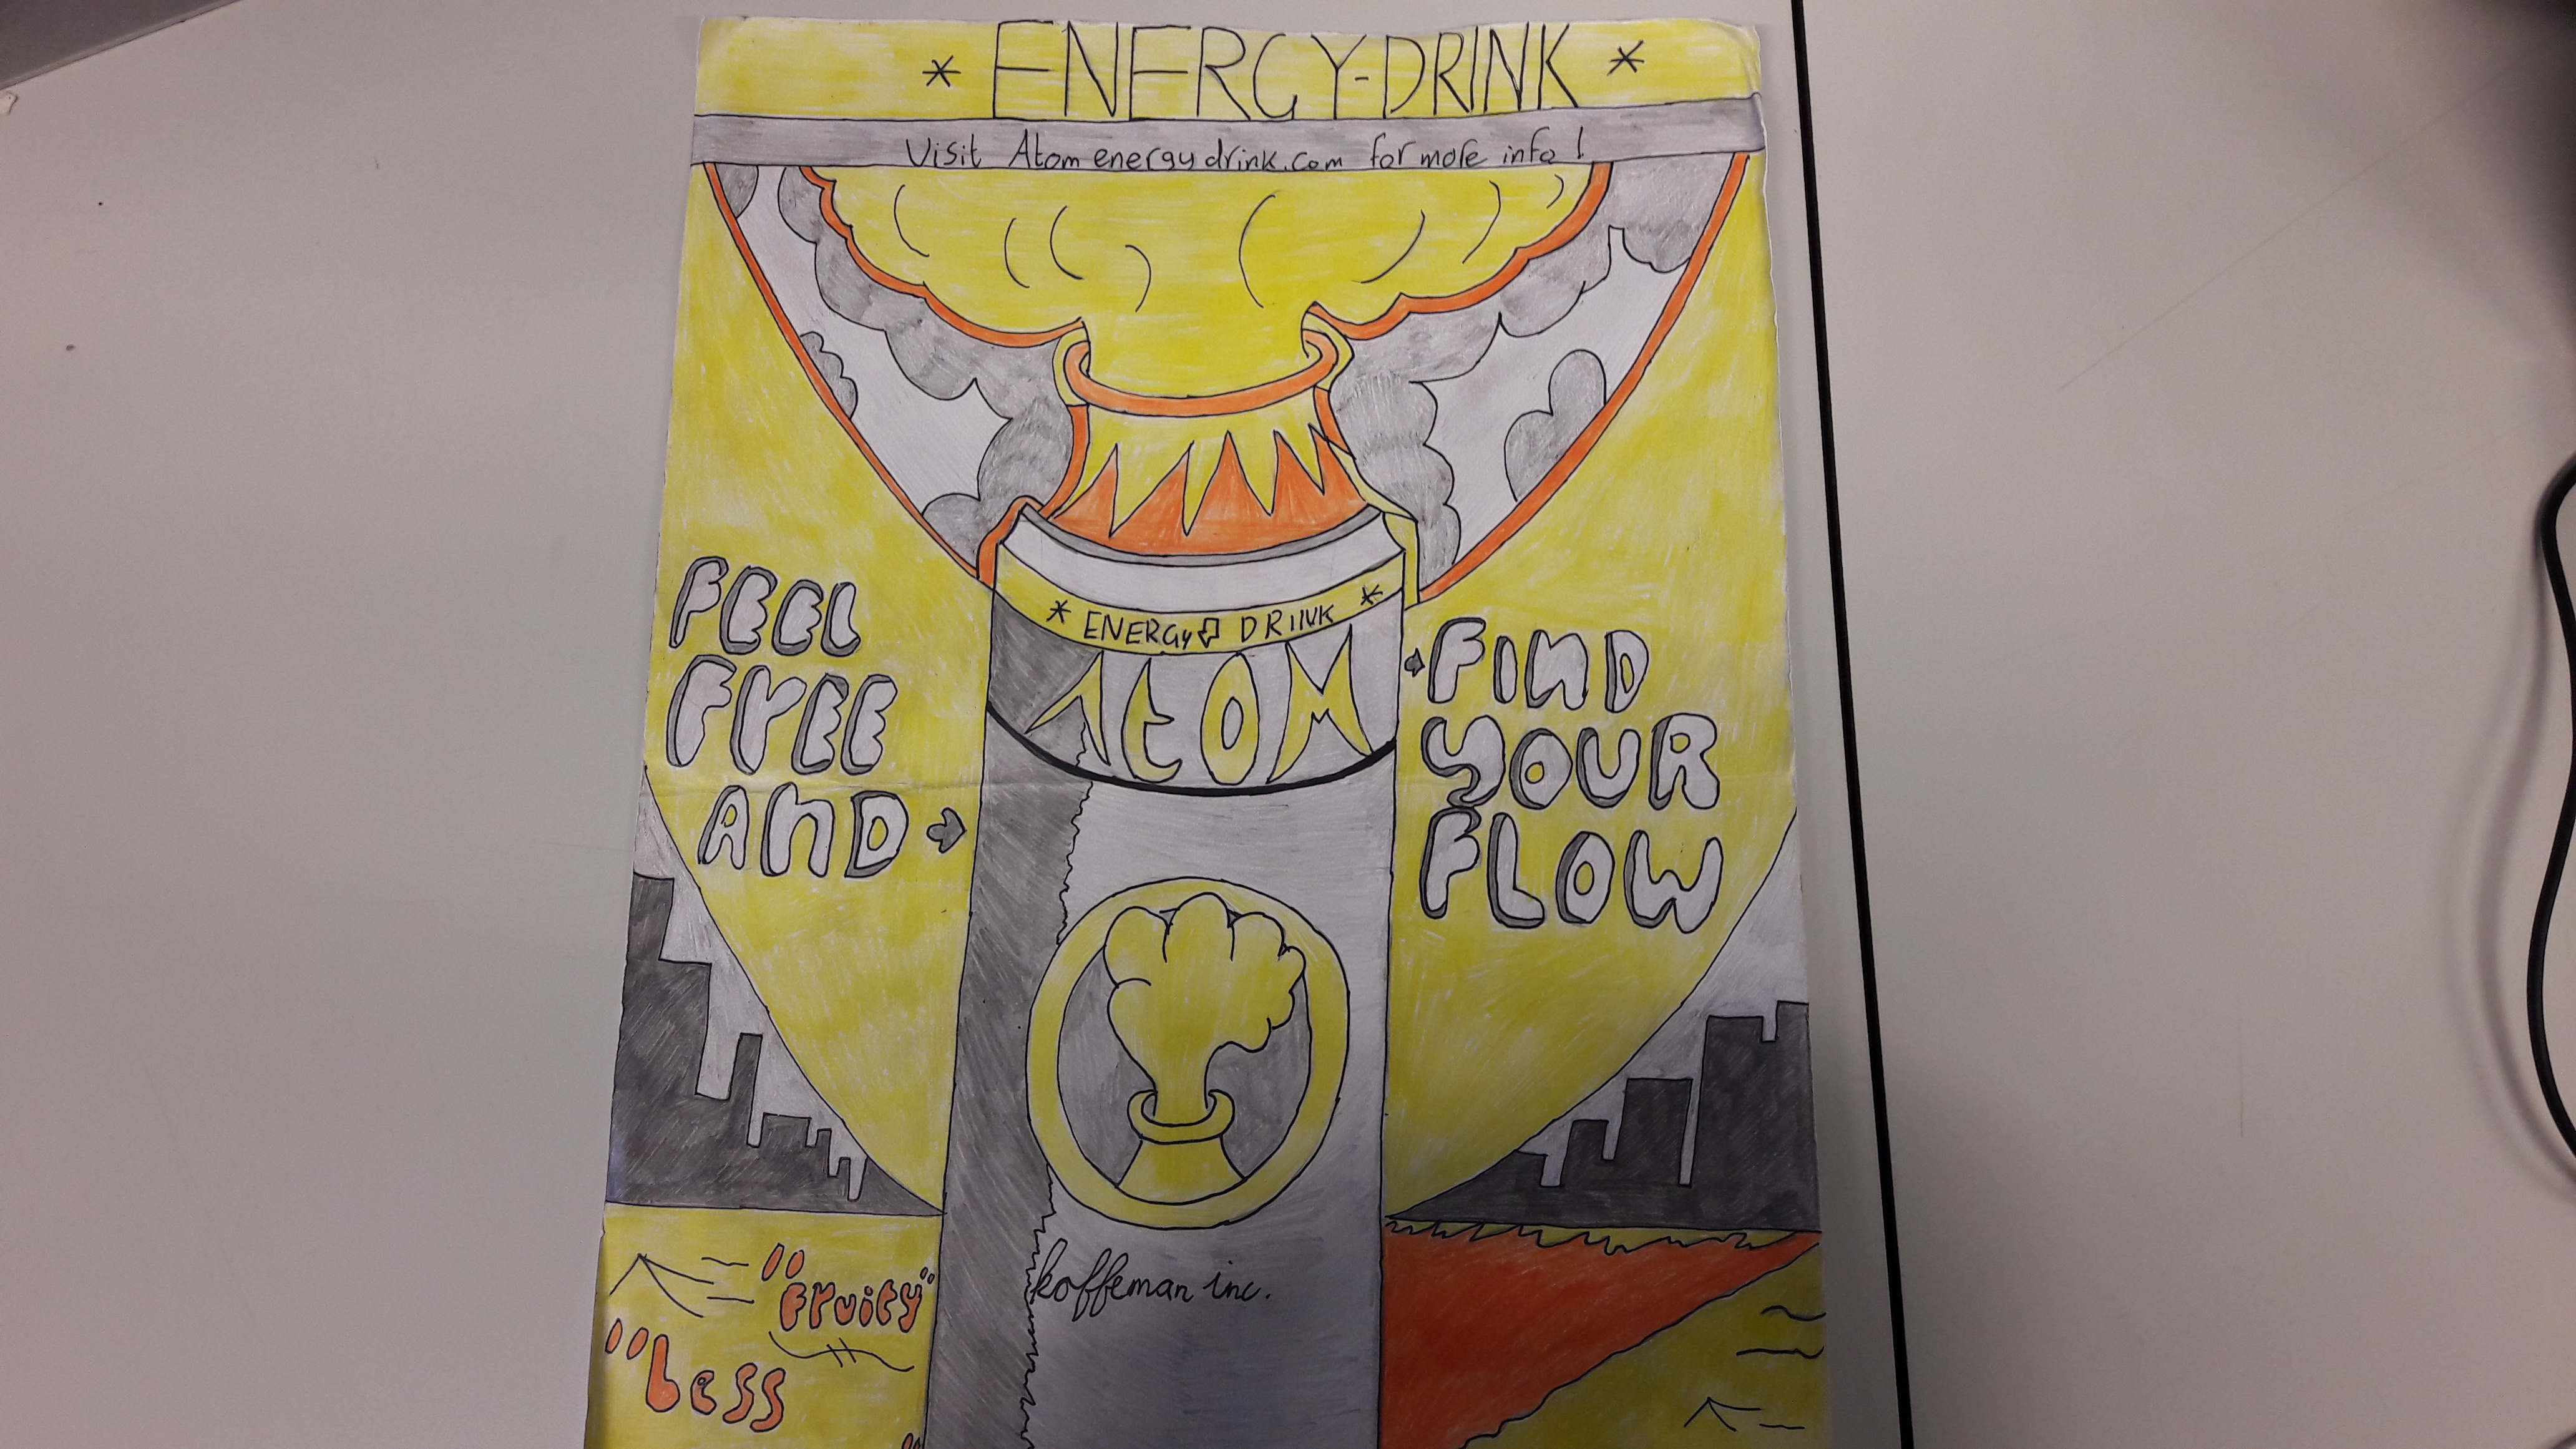 * ENERGY-DRINK *
Visit Atomenergydrink.com for more info!
* ENERGY DRINK *
ATOM
FEEL
FREE
AND
FIND
YOUR
FLOW
koffeman inc.
"Fruity"
"Less